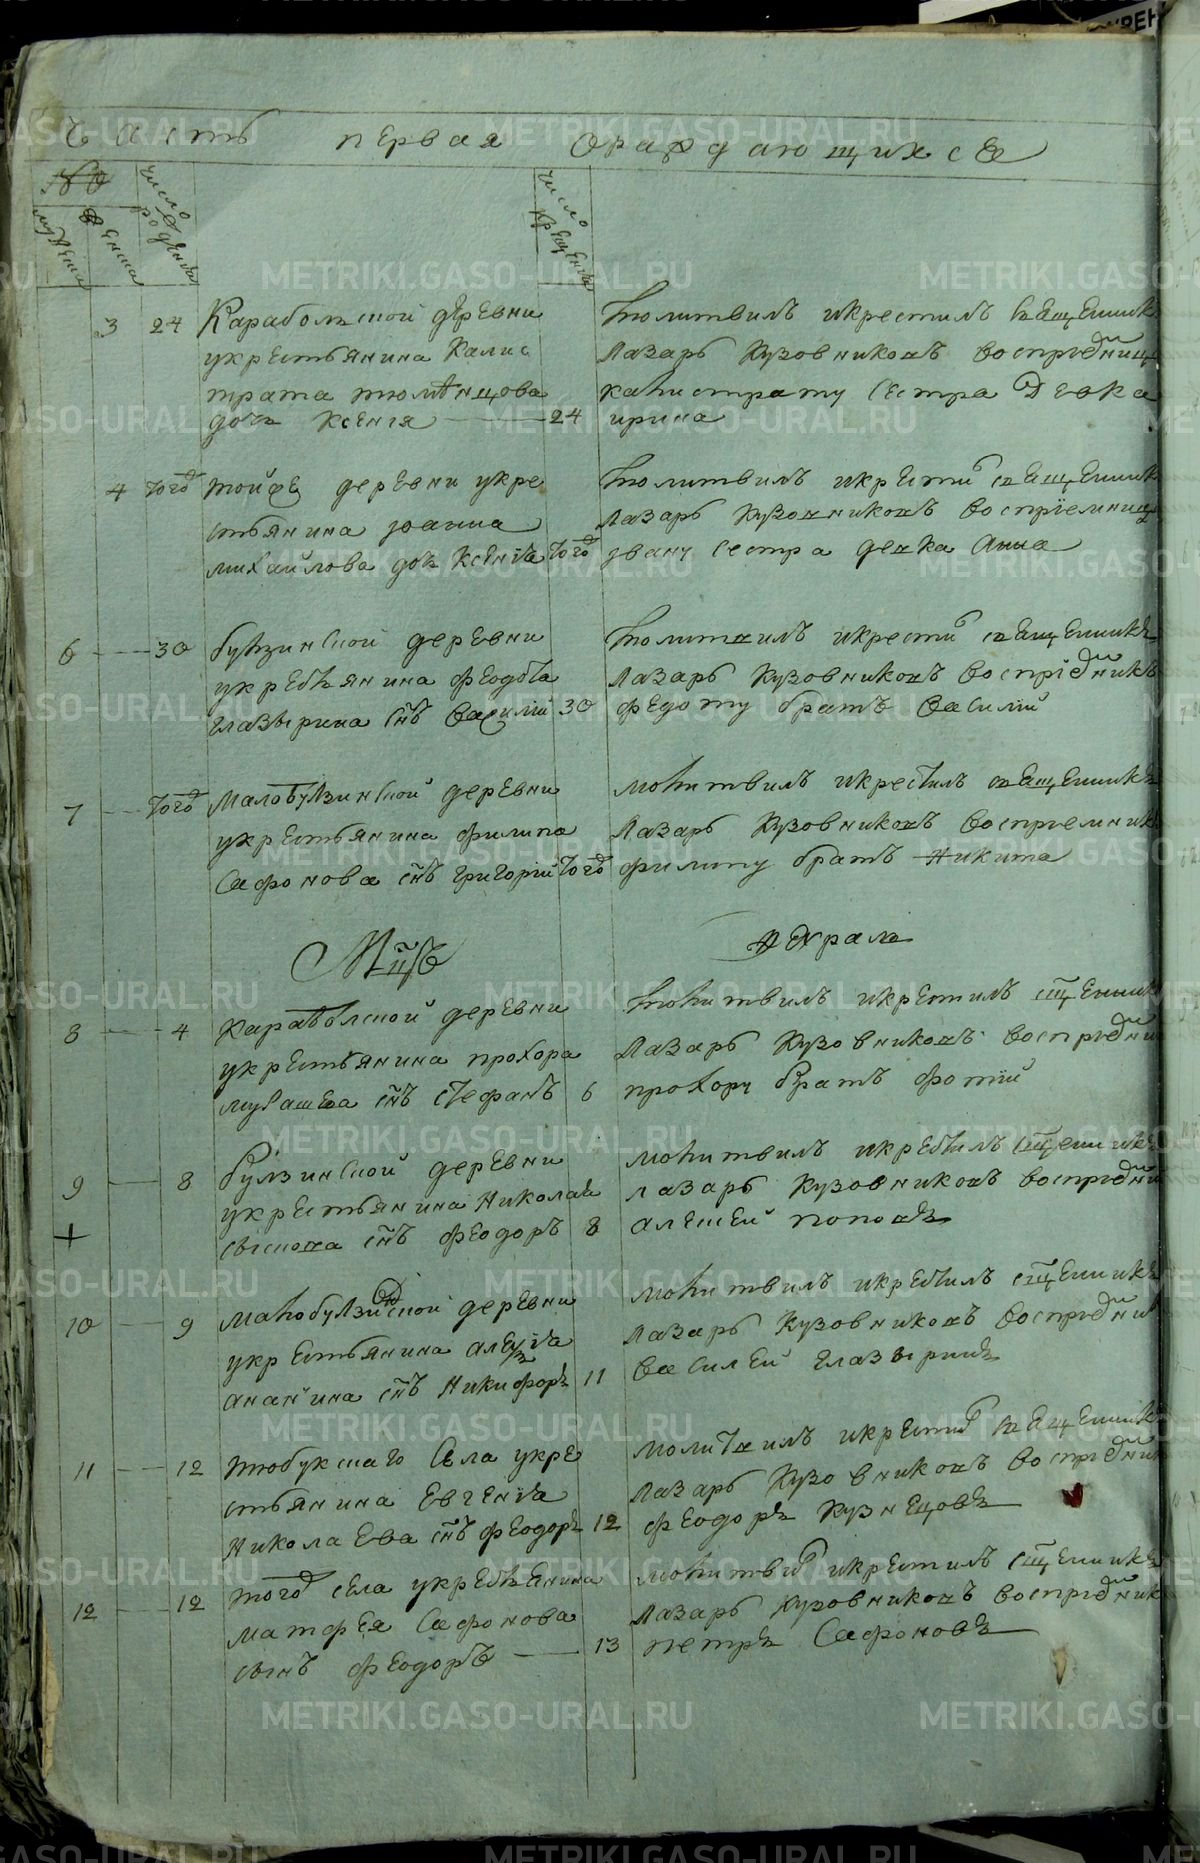 Часть первая ораждающихсѧ
№
мужеска
женска
число рожденїя
число крещенїя
3 24 Караболской деревни
у крестьянина Калис
трата тюменцова
дочь Ксенїя 24
Молитвилъ и крестилъ священник
Лазарь Кузовниковъ воспрїемница
калистрату сестра девка
ирина
4 того тойже деревни у кре
стьянина иоанна
михайлова дочь Ксенїя того
Молитвилъ и крестил священник
Лазарь Кузовниковъ воспрїемница
ивану сестра девка Анна
6 30 булзинской деревни
у крестьянина феодота
глазырина снъ василий 30
Молитвилъ и крестил священникъ
Лазарь Кузовниковъ воспрїемникъ
федоту братъ василий
7 того малобулзинской деревни
у крестьянина филипа
сафонова снъ григорий того
молитвилъ и крестилъ священникъ
Лазарь Кузовниковъ воспрїемник
филипу братъ никита
Мцъ февраль
8 4 караболской деревни
у крестьянина прохора
мурашева снъ стефанъ 6
молитвилъ и крестилъ сщенник
Лазарь Кузовниковъ воспрїемни
прохору братъ фотий
9 8 булзинской деревни
у крестьянина Николая
сысоева снъ феодоръ 8
молитвилъ и крестилъ сщенникъ
лазарь Кузовниковъ воспрїемни
алексей поповъ
10 9 малобулзинской деревни
у крестьянина алеѯїа
ананьина снъ Никифоръ 11
молитвилъ и крестилъ сщенникъ
Лазарь Кузовниковъ воспрїемни
василей глазыринъ
11 12 тюбукскаго села у кре
стьянина Евгенїа
Николаева снъ феодоръ 12
молитвилъ и крестил священник
Лазарь Кузовниковъ воспрїемник
феодоръ Кузнецовъ
12 12 того села у крестьянина
матфея Сафонова
сынъ феодоръ 13
молитвил и крестилъ сщенникъ
Лазарь Кузовниковъ воспрїемник
петръ Сафоновъ
METRIKI.GASO-URAL.RU